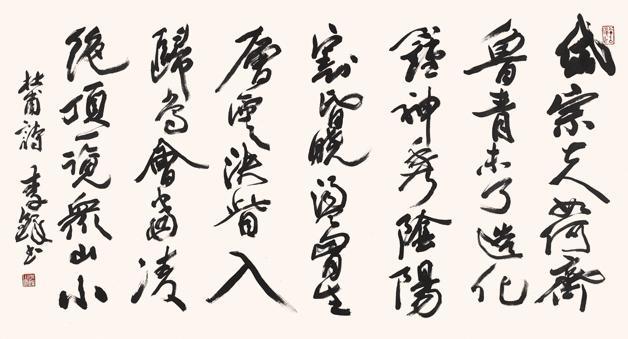 岱宗夫如何齊
魯青未了造化
鍾神秀陰陽
割昏曉盪胸生
層雲決眥入
歸鳥會當凌
絕頂一覽眾山小
杜甫詩 李鐸书